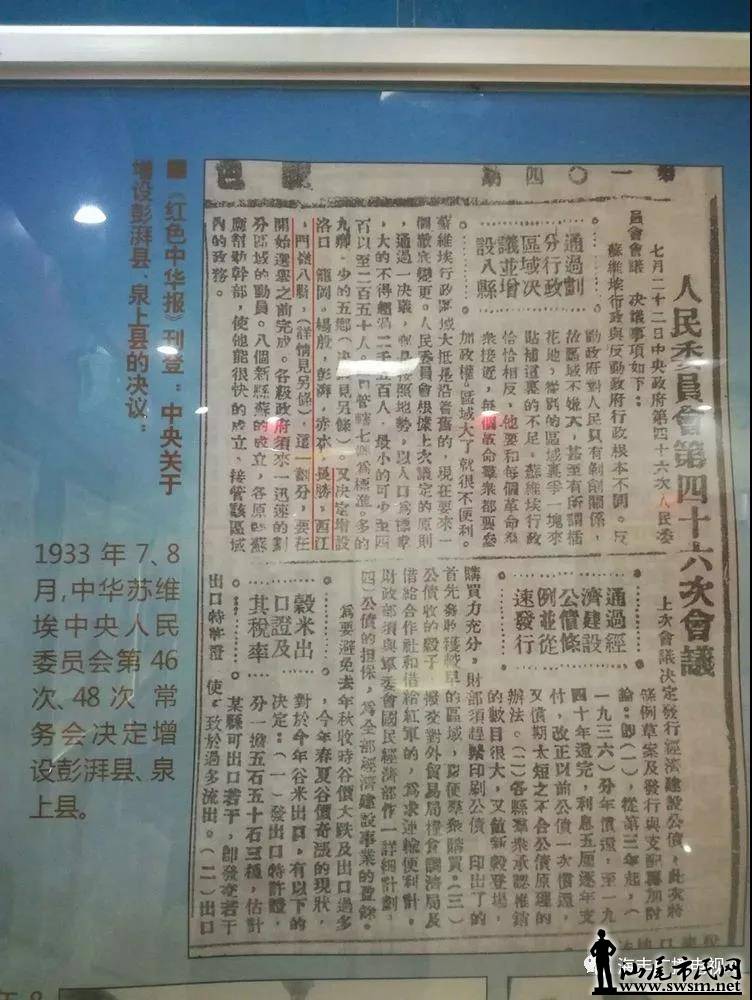 ■《红色中华报》刊登：中央关于
增设彭湃县、泉上县的决议：
1933年7、8
月,中华苏维
埃中央人民
委员会第46
次、48次 常
务会决定增
设彭湃县、泉
上县。
第一〇四期
人民委員會第四十六次會議
七月二十二日中央政府第四十六次人民委
員會會議 決議事項如下：
通過劃
分行政
區域決
議並增
設八縣
蘇維埃行政與反動政府行政根本不同。反
動政府對人民只有剝削關係，
故區域不嫌大，甚至有所謂插
花地，
貼補這裏的不足。蘇維埃行政
恰恰相反，他要和每個革命羣
衆接近，每個革命羣衆都要參
加政權，區域大了就很不便利。
蘇維埃行政區域大抵是沿舊的，現在要來一
個徹底變更。人民委員會根據上次議定的原則
，通過一決議，以人口爲標準
，大的不得超過二千五百人，最小的可少至四
百以至二百五十人。
九鄉，少的五鄉（決議見另條）。又決定增設
洛口，龍岡，楊殷，彭湃，赤水，長勝，西江
，門嶺八縣，（詳情見另條），這一劃分，要在
開始選舉之前完成。各級政府須來一迅速的劃
分區域的動員。八個新縣蘇的成立，各原縣蘇
應幫助幹部，使他能很快的成立，接管該區域
內的政務。
通過經
濟建設
公債條
例並從
速發行
上次會議決定發行經濟建設公債，此次將
條例草案及發行與支配縣加討
論：即（一），從第三年起，（
一九三六）分年償還，至一九
四十年還完，利息五厘逐年支
付，改正以前公債一次償還，
又債期太短之不合公債原理的
辦法。（二）各縣羣衆承認推銷
的數目很大，又値新穀登場，
購買力充分，財部須趕緊印刷公債，印出了的
首先發收穫較早的區域，以便羣衆購買。（三）
公債收的穀子，撥交對外貿易局糧食調濟局及
借給合作社和借給紅軍的，爲求運輸便利計，
財政部須與軍委會國民經濟部作一詳細計劃，
四）公債的担保，爲全部經濟建設事業的盈餘。
穀米出
口證及
其稅率
爲要避免去年秋收時谷價大跌及出口過多
，今年春夏谷價奇漲的現狀，
對於今年谷米出口，有以下的
決定：（一）發出口特許證，
分一擔五石五十石三種，估計
某縣可出口若干，卽發交若干
出口特許證，使 致於過多流出。（二）出口
海丰广播电视
汕尾市民网
www.swsm.net